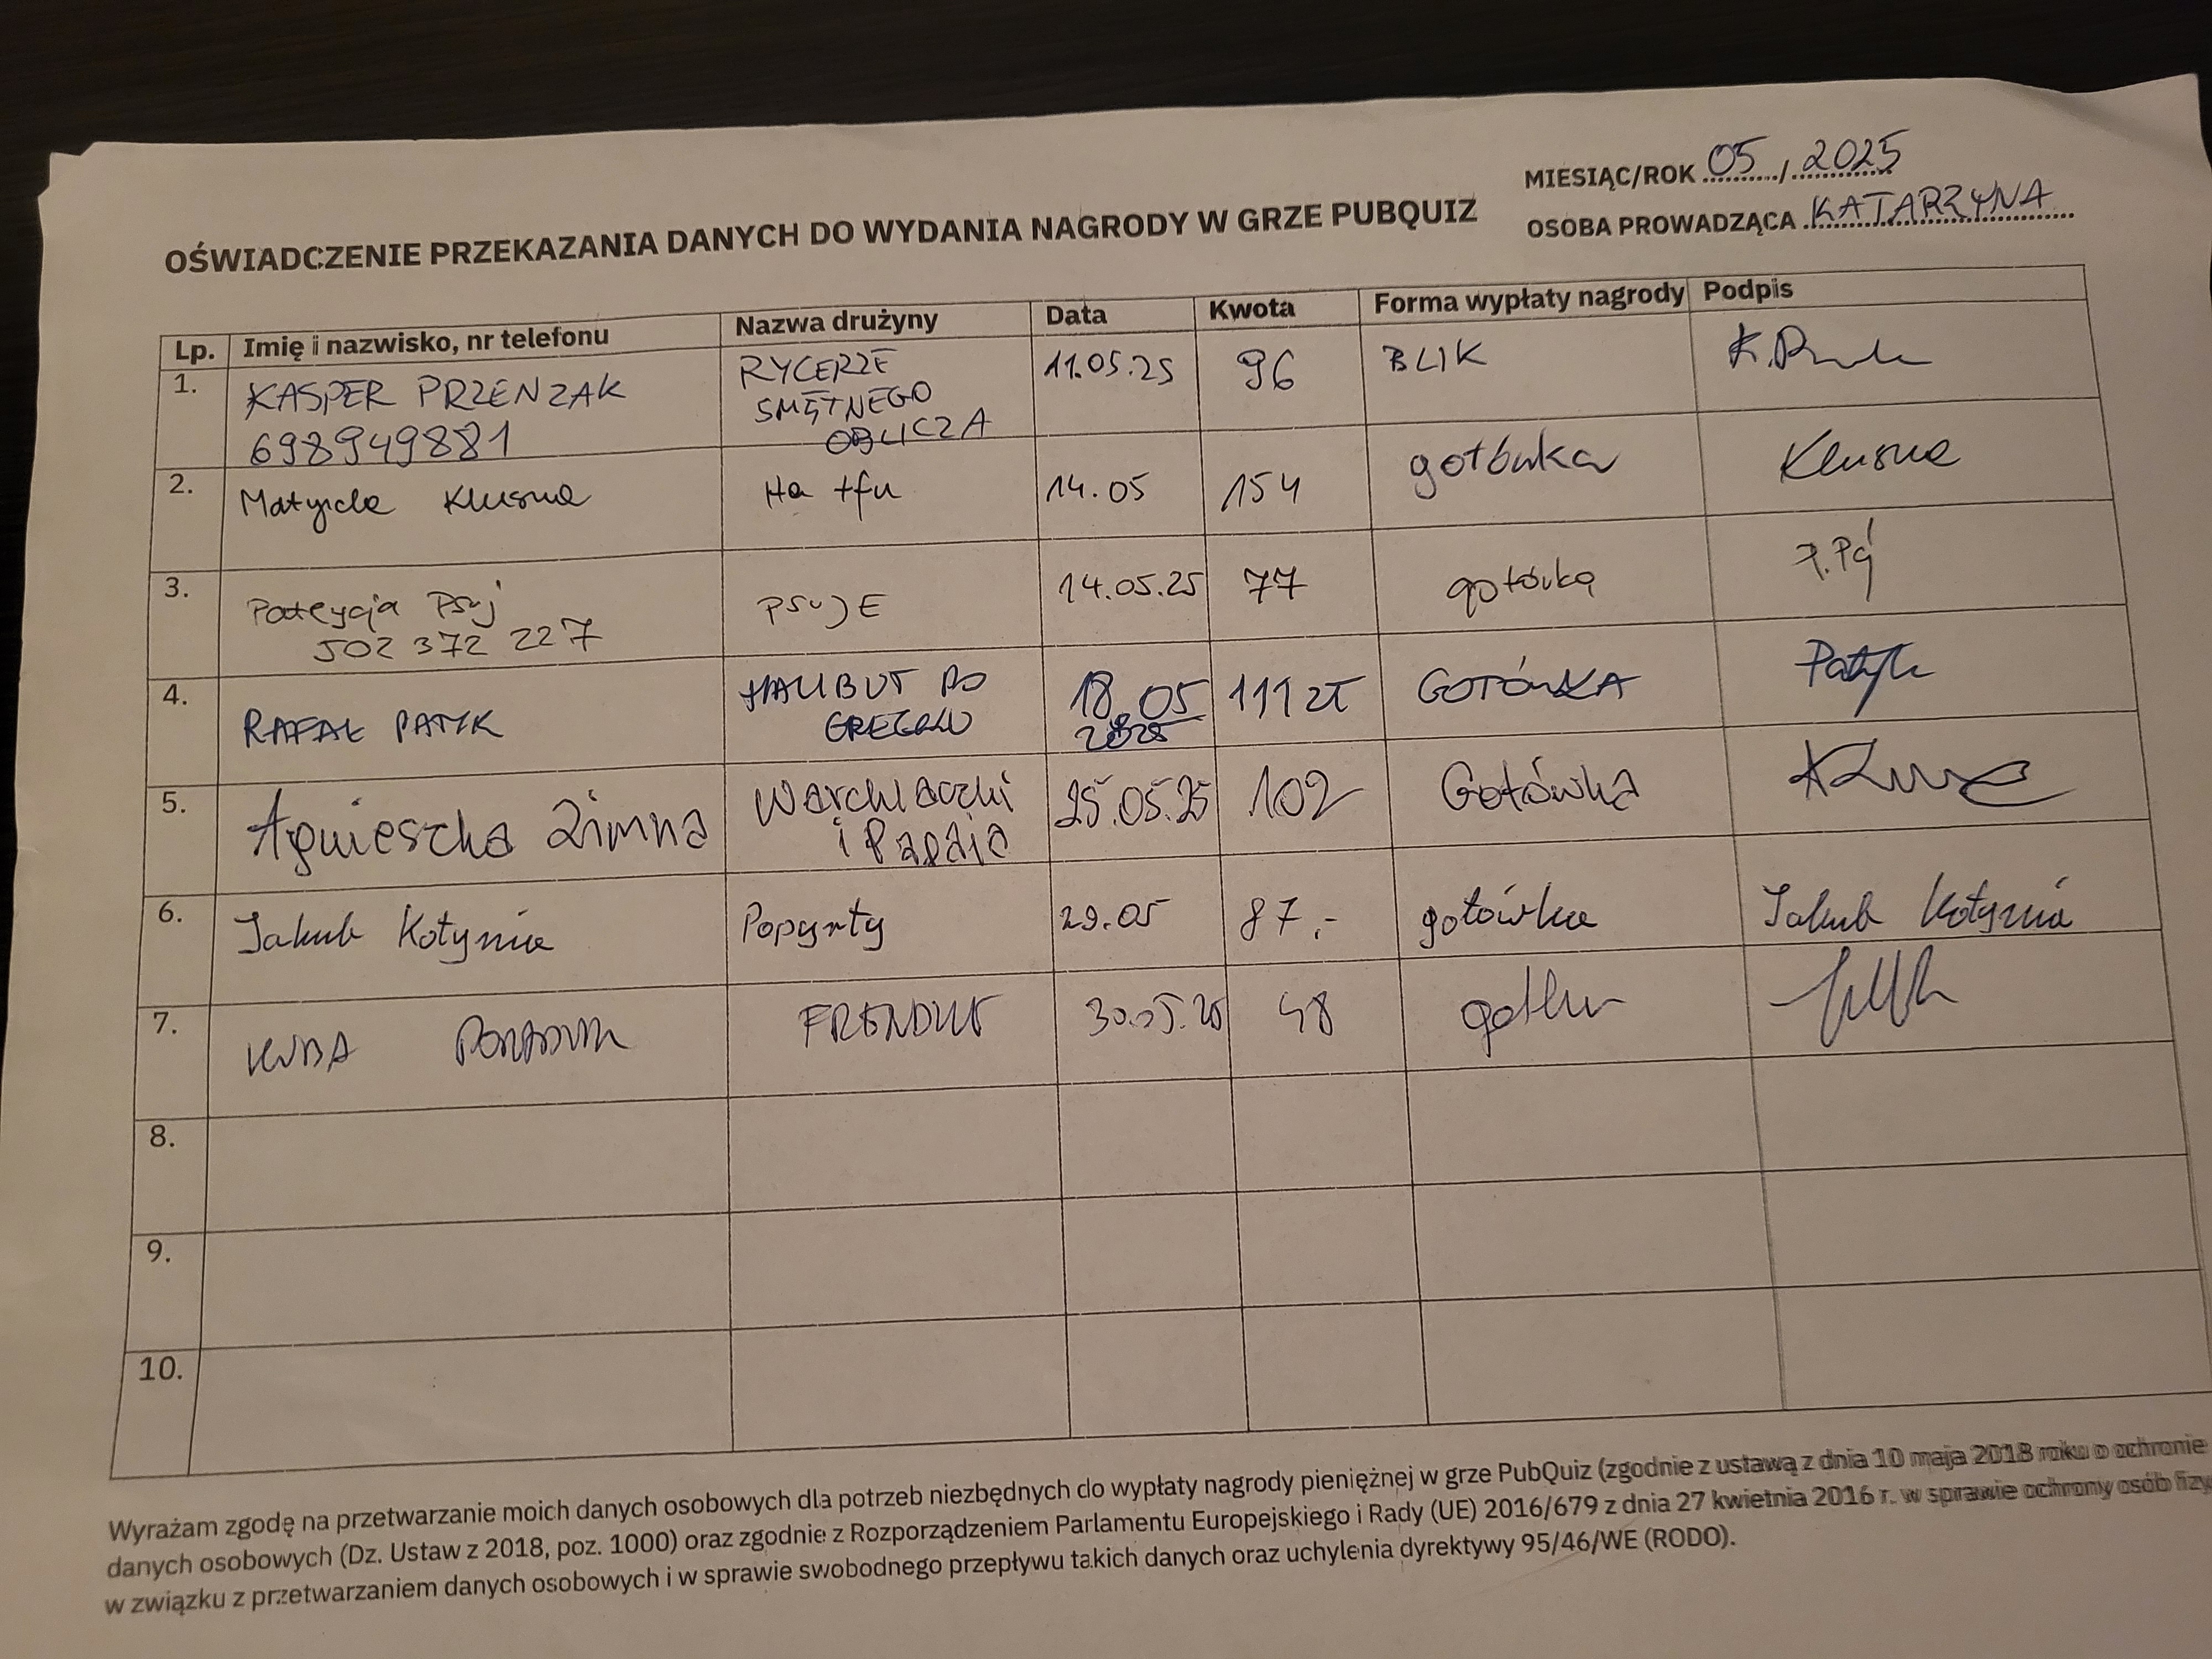 MIESIĄC/ROK 05 / 2025
OŚWIADCZENIE PRZEKAZANIA DANYCH DO WYDANIA NAGRODY W GRZE PUBQUIZ
OSOBA PROWADZĄCA KATARZYNA
Lp. Imię i nazwisko, nr telefonu Nazwa drużyny Data Kwota Forma wypłaty nagrody Podpis
1. KASPER PRZENZAK RYCERZE 11.05.25 96 BLIK
SMĘTNEGO
698949881 OBLICZA
2. Matylda Klusna Ha tfu 14.05 154 gotówka Klusna
3. Patrycja Psuj PSUJE 14.05.25 77 gotówka
502 372 227
4. RAFAŁ PATYK HALIBUT PO 18.05 111 zł GOTÓWKA Patyk
GRECKU 2025
5. Agnieszka Zimna Warchlaczki 25.05.25 102 Gotówka
i
6. Jakub Kotynia Popyrty 29.05 87,- gotówka Jakub Kotynia
7. KUBA 30.05.25 48
8.
9.
10.
Wyrażam zgodę na przetwarzanie moich danych osobowych dla potrzeb niezbędnych do wypłaty nagrody pieniężnej w grze PubQuiz (zgodnie z ustawą z dnia 10 maja 2018 roku o ochronie
danych osobowych (Dz. Ustaw z 2018, poz. 1000) oraz zgodnie z Rozporządzeniem Parlamentu Europejskiego i Rady (UE) 2016/679 z dnia 27 kwietnia 2016 r. w sprawie ochrony osób fizy
w związku z przetwarzaniem danych osobowych i w sprawie swobodnego przepływu takich danych oraz uchylenia dyrektywy 95/46/WE (RODO).